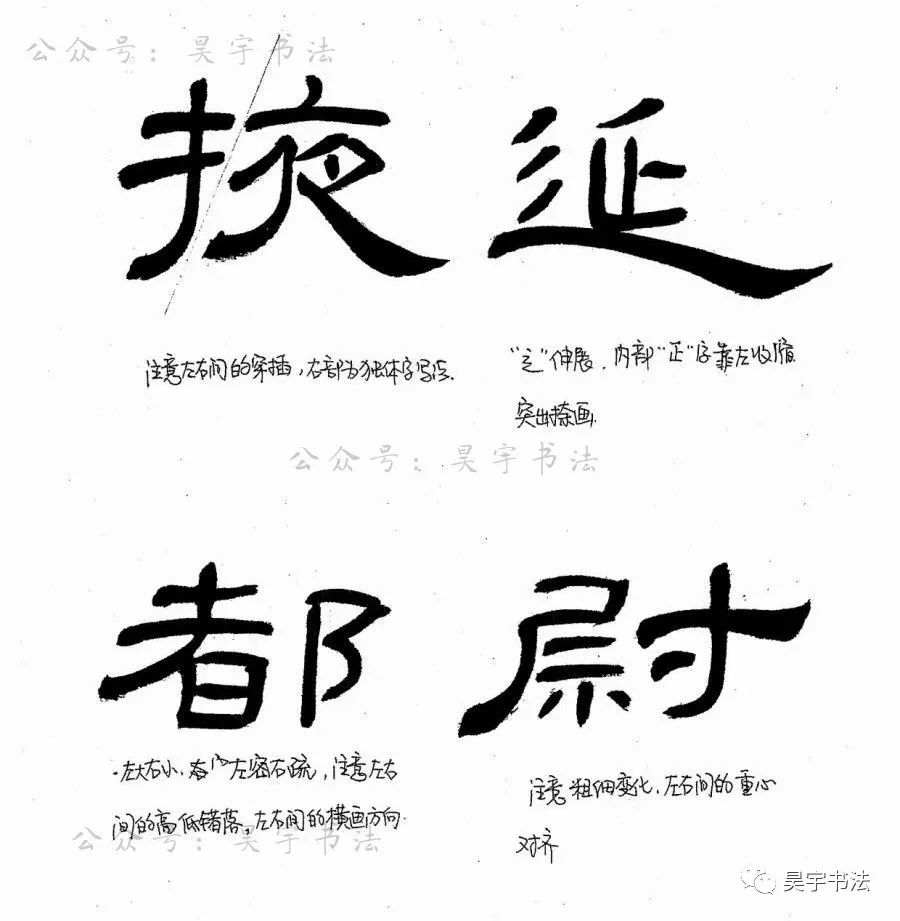 公众号：昊宇书法
掖 延
注意左右间的穿插，右部为独体字写法.
"辶"伸展，内部"正"字靠左收缩
突出捺画.
公众号：昊宇书法
都 尉
左大右小，左密右疏，注意左右
间的高低错落，左右间的横画方向.
注意粗细变化，左右间的重心
对齐
公众号：昊宇书法
昊宇书法